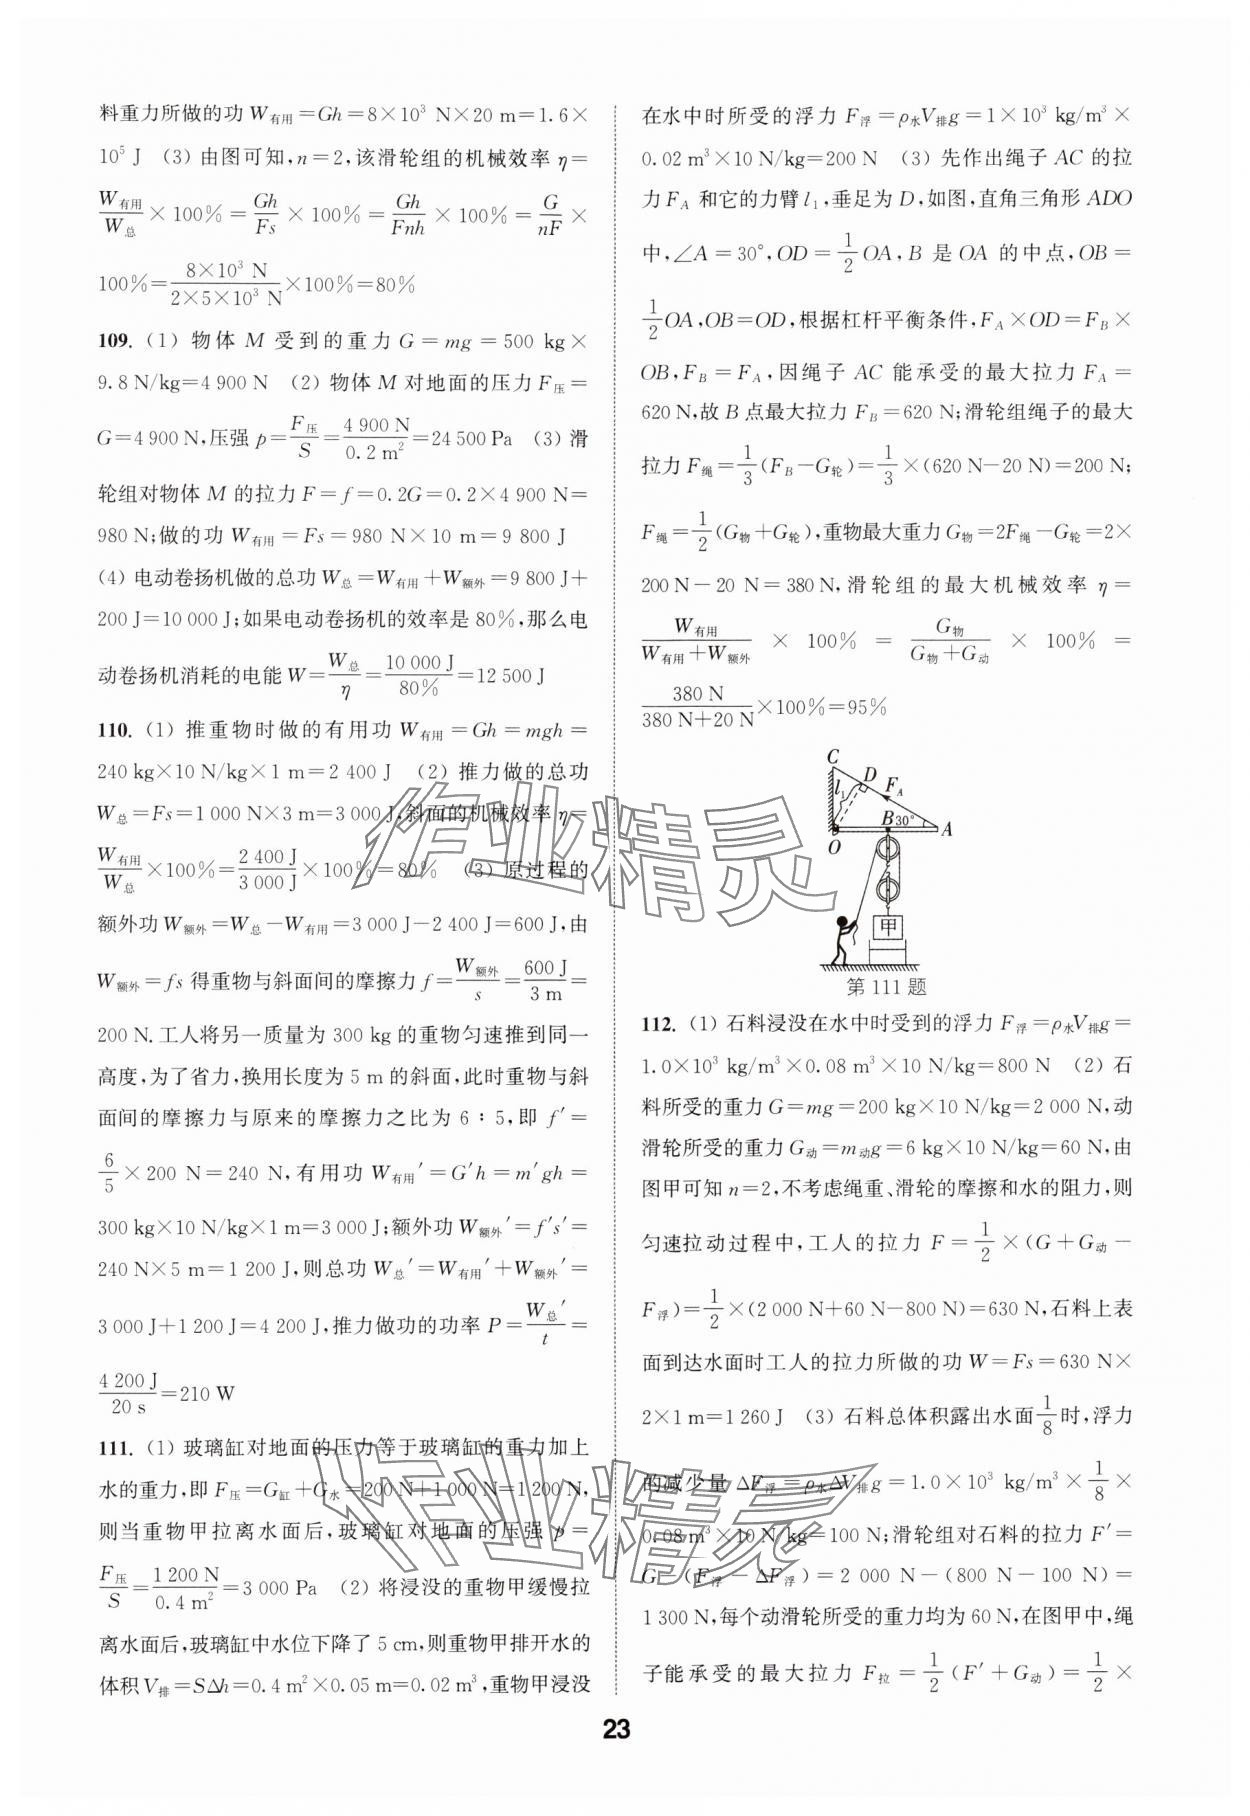 料重力所做的功 W有用＝Gh＝8×10³ N×20 m＝1.6×
10⁵ J （3）由图可知,n＝2,该滑轮组的机械效率 η＝
W有用/W总 ×100％＝Gh/Fs×100％＝Gh/Fnh×100％＝G/nF×
100％＝8×10³ N/2×5×10³ N×100％＝80％
109.（1）物体 M 受到的重力 G＝mg＝500 kg×
9.8 N/kg＝4 900 N （2）物体 M 对地面的压力 F压＝
G＝4 900 N,压强 p＝F压/S＝4 900 N/0.2 m²＝24 500 Pa （3）滑
轮组对物体 M 的拉力 F＝f＝0.2G＝0.2×4 900 N＝
980 N;做的功 W有用＝Fs＝980 N×10 m＝9 800 J
（4）电动卷扬机做的总功 W总＝W有用＋W额外＝9 800 J＋
200 J＝10 000 J;如果电动卷扬机的效率是 80％,那么电
动卷扬机消耗的电能 W＝W总/η＝10 000 J/80％＝12 500 J
110.（1）推重物时做的有用功 W有用＝Gh＝mgh＝
240 kg×10 N/kg×1 m＝2 400 J （2）推力做的总功
W总＝Fs＝1 000 N×3 m＝3 000 J,斜面的机械效率 η＝
W有用/W总×100％＝2 400 J/3 000 J×100％＝80％ （3）原过程的
额外功 W额外＝W总－W有用＝3 000 J－2 400 J＝600 J,由
W额外＝fs 得重物与斜面间的摩擦力 f＝W额外/s＝600 J/3 m＝
200 N.工人将另一质量为 300 kg 的重物匀速推到同一
高度,为了省力,换用长度为 5 m 的斜面,此时重物与斜
面间的摩擦力与原来的摩擦力之比为 6∶5,即 f′＝
6/5×200 N＝240 N,有用功 W有用′＝G′h＝m′gh＝
300 kg×10 N/kg×1 m＝3 000 J;额外功 W额外′＝f′s′＝
240 N×5 m＝1 200 J,则总功 W总′＝W有用′＋W额外′＝
3 000 J＋1 200 J＝4 200 J,推力做功的功率 P＝W总′/t＝
4 200 J/20 s＝210 W
111.（1）玻璃缸对地面的压力等于玻璃缸的重力加上
水的重力,即 F压＝G缸＋G水＝200 N＋1 000 N＝1 200 N,
则当重物甲拉离水面后,玻璃缸对地面的压强 p＝
F压/S＝1 200 N/0.4 m²＝3 000 Pa （2）将浸没的重物甲缓慢拉
离水面后,玻璃缸中水位下降了 5 cm,则重物甲排开水的
体积 V排＝SΔh＝0.4 m²×0.05 m＝0.02 m³,重物甲浸没
在水中时所受的浮力 F浮＝ρ水V排g＝1×10³ kg/m³×
0.02 m³×10 N/kg＝200 N （3）先作出绳子 AC 的拉
力 FA 和它的力臂 l₁,垂足为 D,如图,直角三角形 ADO
中,∠A＝30°,OD＝1/2 OA,B 是 OA 的中点,OB＝
1/2 OA,OB＝OD,根据杠杆平衡条件,FA×OD＝FB×
OB,FB＝FA,因绳子 AC 能承受的最大拉力 FA＝
620 N,故 B 点最大拉力 FB＝620 N;滑轮组绳子的最大
拉力 F绳＝1/3(FB－G轮)＝1/3×(620 N－20 N)＝200 N;
F绳＝1/2(G物＋G轮),重物最大重力 G物＝2F绳－G轮＝2×
200 N－20 N＝380 N,滑轮组的最大机械效率 η＝
W有用/W有用＋W额外 × 100％ ＝ G物/G物＋G动 × 100％ ＝
380 N/380 N＋20 N×100％＝95％
C
D
FA
l₁
B
30°
A
O
甲
第 111 题
112.（1）石料浸没在水中时受到的浮力 F浮＝ρ水V排g＝
1.0×10³ kg/m³×0.08 m³×10 N/kg＝800 N （2）石
料所受的重力 G＝mg＝200 kg×10 N/kg＝2 000 N,动
滑轮所受的重力 G动＝m动g＝6 kg×10 N/kg＝60 N,由
图甲可知 n＝2,不考虑绳重、滑轮的摩擦和水的阻力,则
匀速拉动过程中,工人的拉力 F＝1/2×(G＋G动－
F浮)＝1/2×(2 000 N＋60 N－800 N)＝630 N,石料上表
面到达水面时工人的拉力所做的功 W＝Fs＝630 N×
2×1 m＝1 260 J （3）石料总体积露出水面1/8时,浮力
的减少量 ΔF浮＝ρ水ΔV排g＝1.0×10³ kg/m³×1/8×
0.08 m³×10 N/kg＝100 N;滑轮组对石料的拉力 F′＝
G－(F浮－ΔF浮)＝2 000 N－(800 N－100 N)＝
1 300 N,每个动滑轮所受的重力均为 60 N,在图甲中,绳
子能承受的最大拉力 F拉＝1/2(F′＋G动)＝1/2×
23
作业精灵
作业精灵